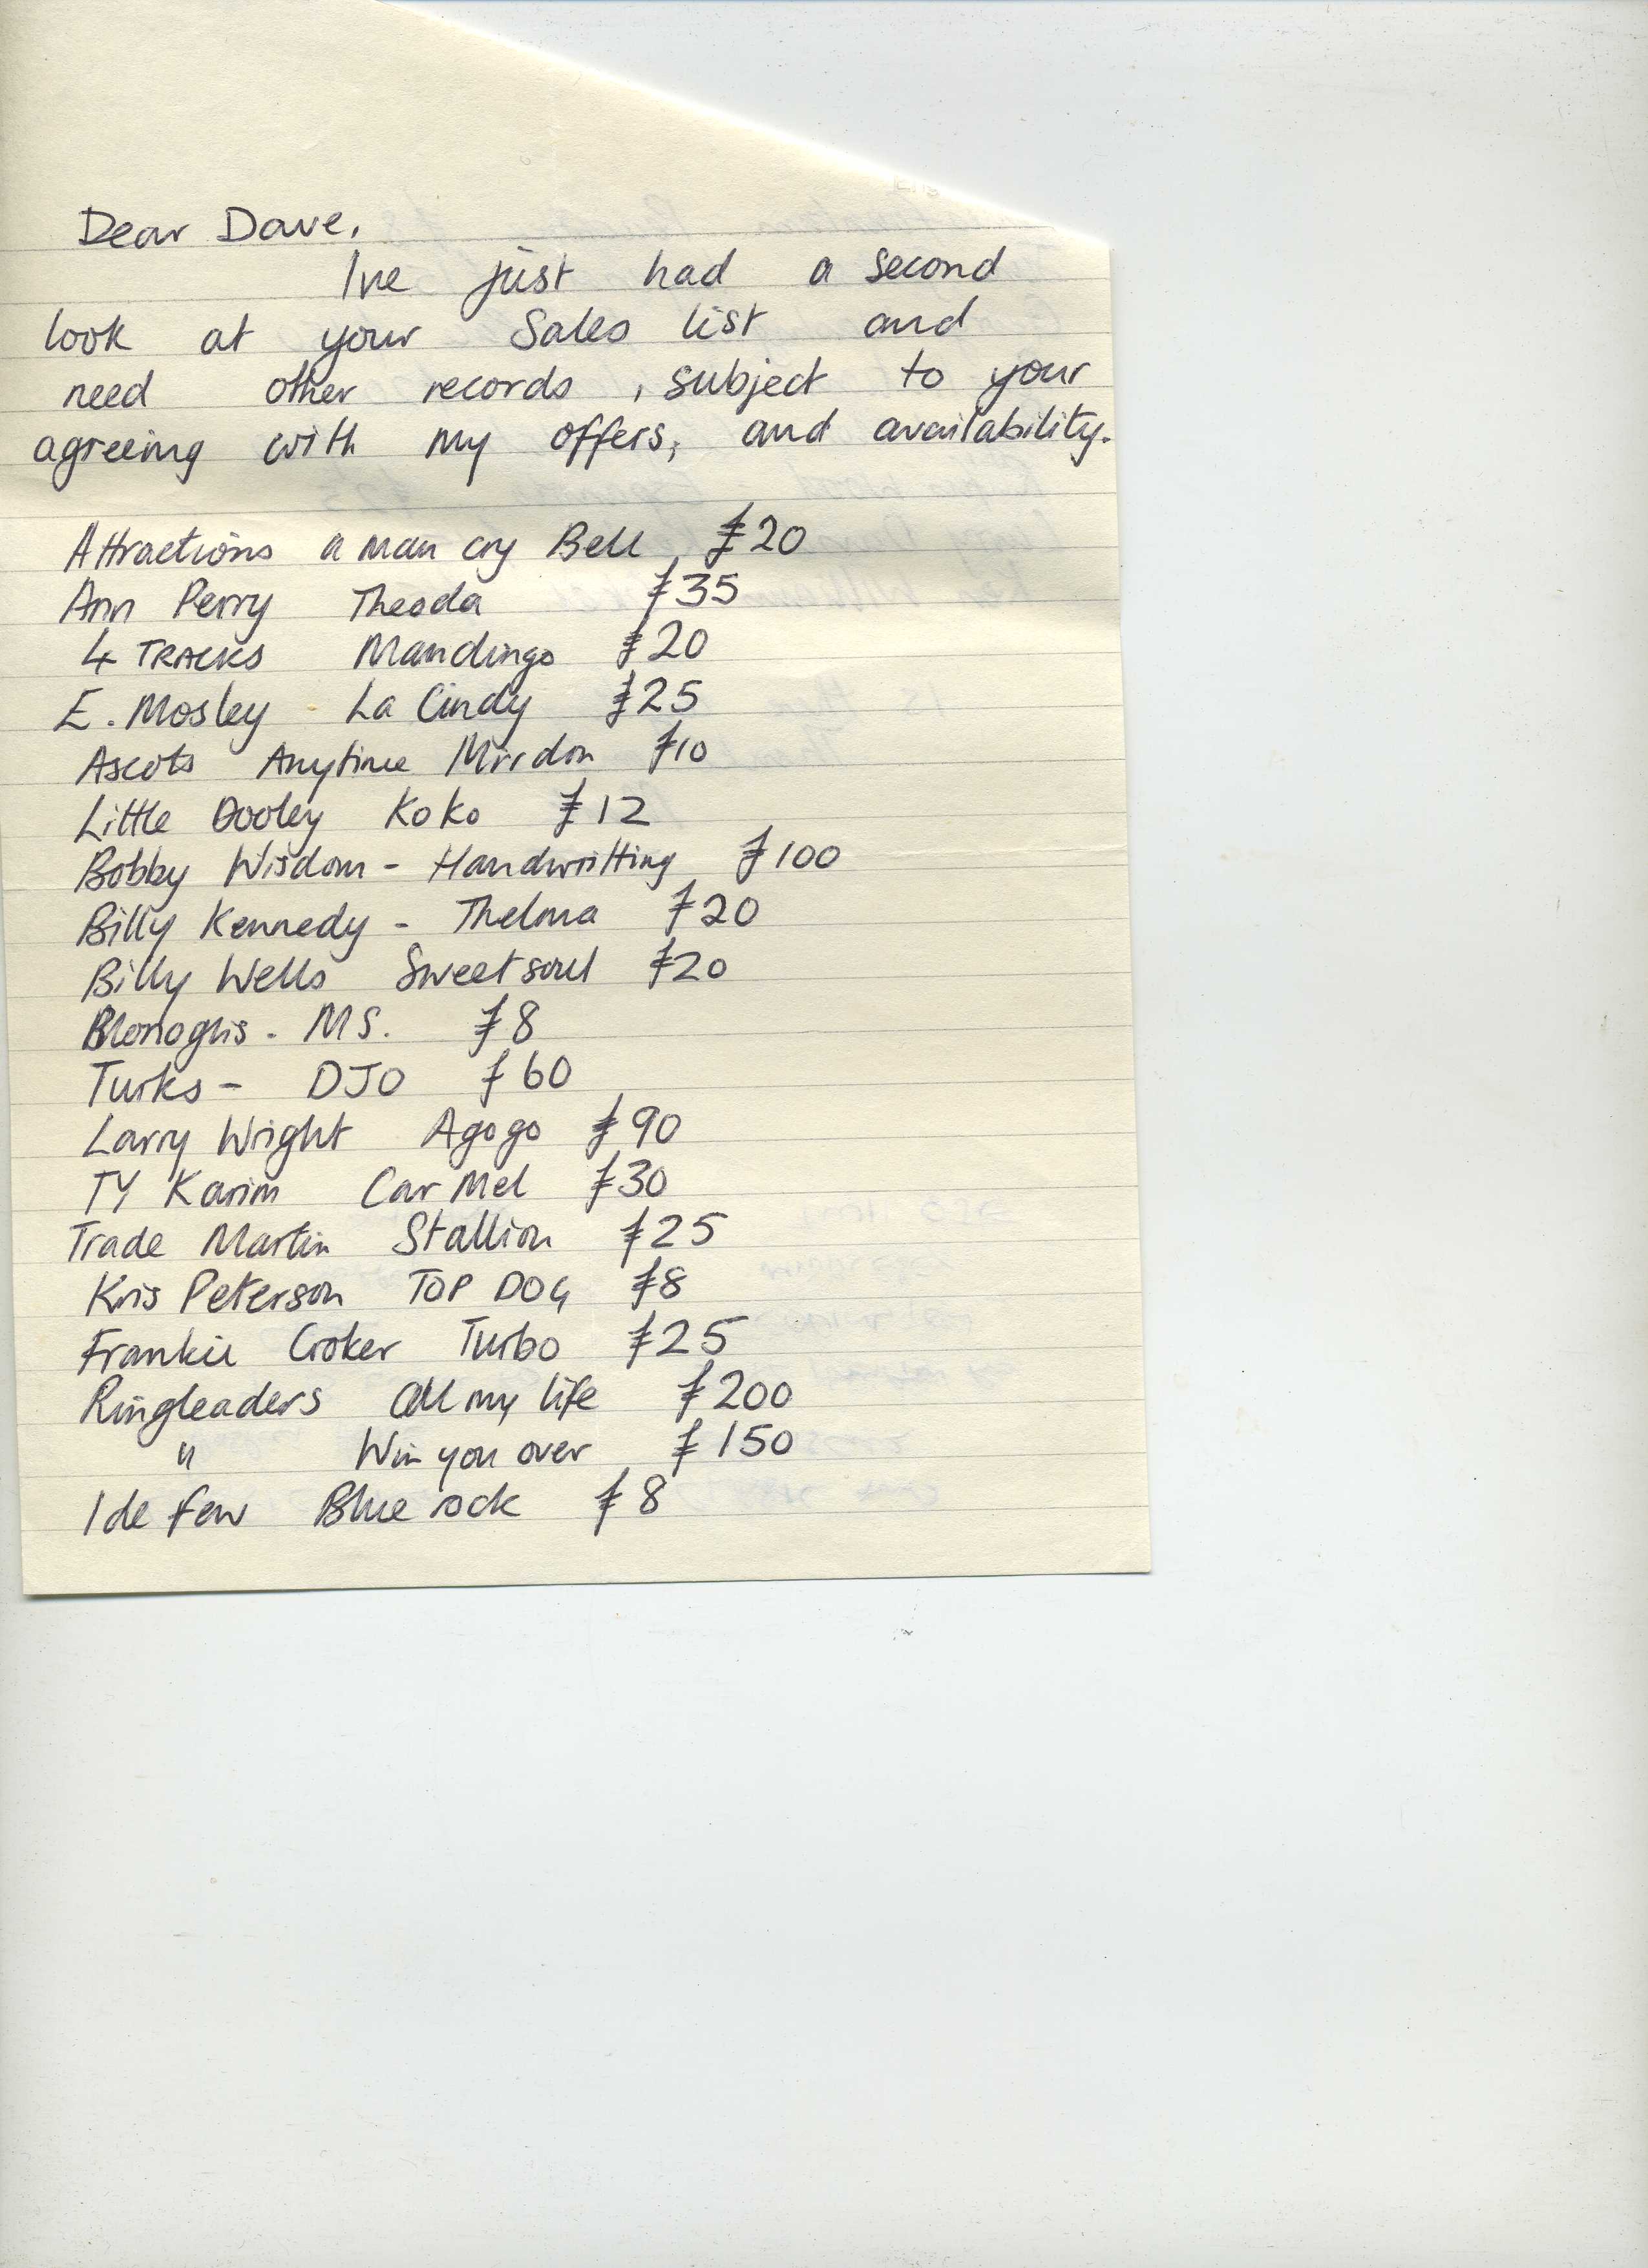 Dear Dave,
Ive just had a second
look at your Sales list and
need other records, subject to your
agreeing with my offers, and availability.
Attractions a man cry Bell £20
Ann Perry Theoda £35
4 TRACKS Mandingo £20
E. Mosley - La Cindy £25
Ascots Anytime Mirdon £10
Little Dooley Koko £12
Bobby Wisdom - Handwritting £100
Billy Kennedy - Thelma £20
Billy Wells Sweet soul £20
MS. £8
Turks - DJO £60
Larry Wright Agogo £90
TY Karim Car Mel £30
Trade Martin Stallion £25
Kris Peterson TOP DOG £8
Frankie Croker Turbo £25
Ringleaders all my life £200
" Win you over £150
I de few Blue rock £8